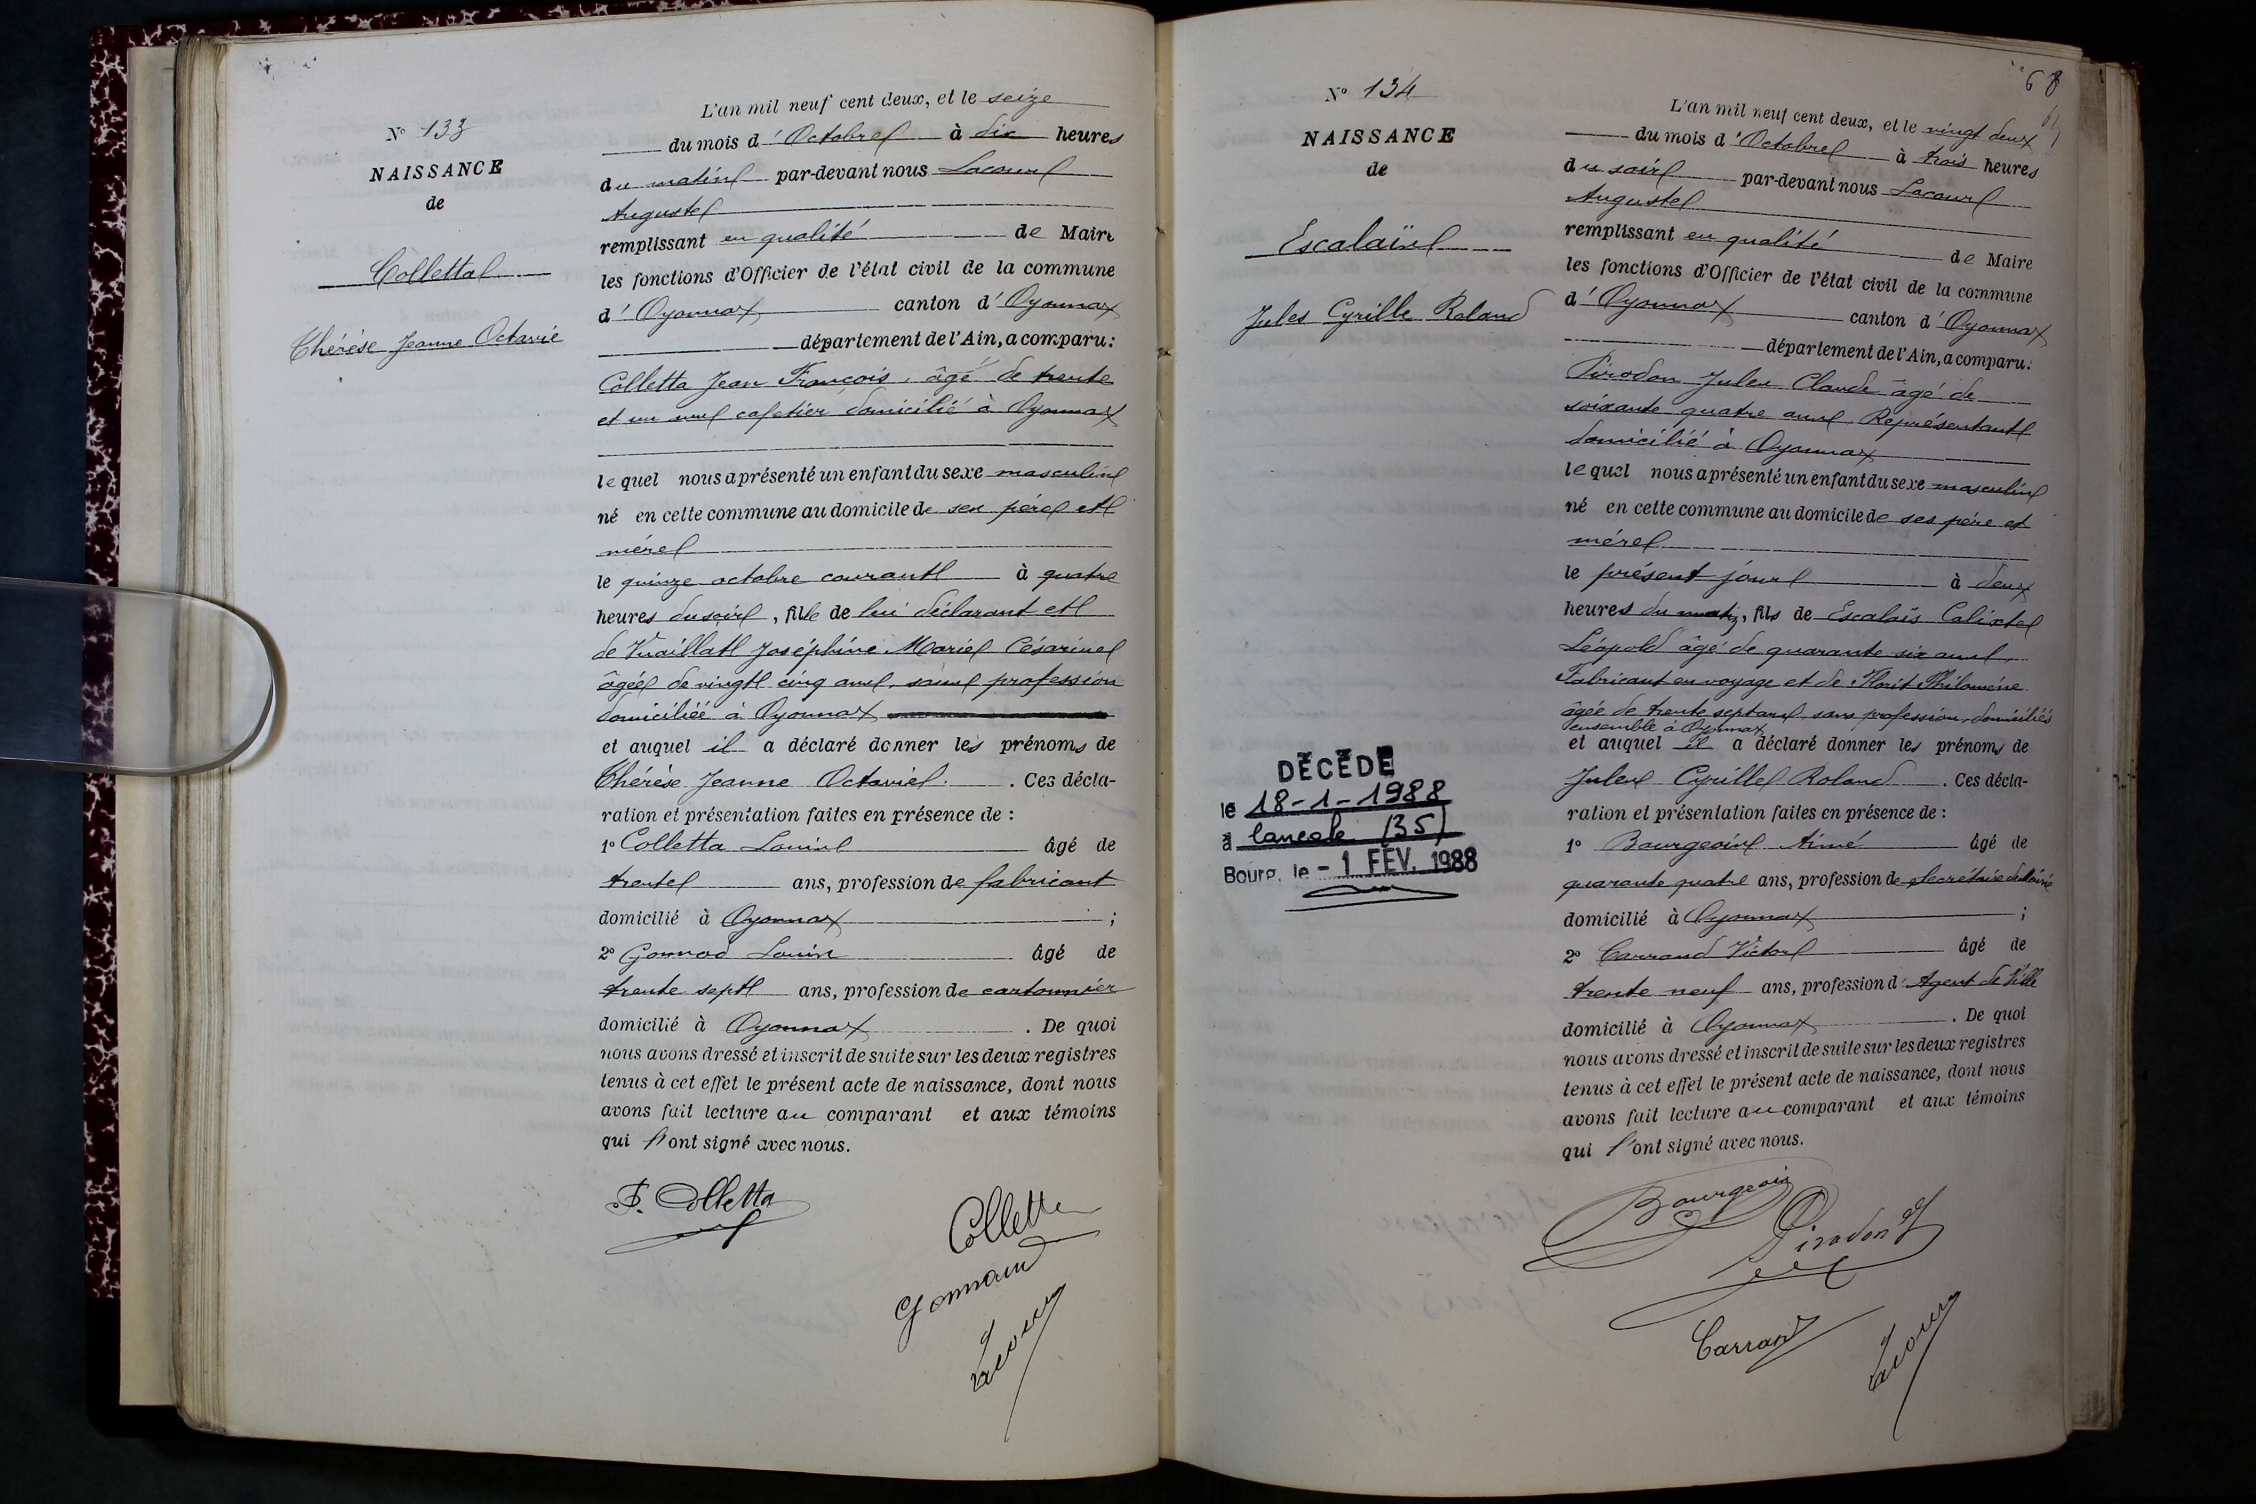 N° 133
NAISSANCE
de
Colletta
Thérèse Jeanne Octavie
L'an mil neuf cent deux, et le seize
du mois d'Octobre à dix heures
du matin par-devant nous Lacour
Auguste
remplissant en qualité de Maire
les fonctions d'Officier de l'état civil de la commune
d'Oyonnax canton d'Oyonnax
département de l'Ain, a comparu:
Colletta Jean François, âgé de trente
et un ans cafetier domicilié à Oyonnax
lequel nous a présenté un enfant du sexe masculin
né en cette commune au domicile de ses père et
mère
le quinze octobre courant à quatre
heures du soir, fille de lui déclarant et
de Vuaillat Joséphine Marie Césarine
âgée de vingt cinq ans, sans profession
domiciliée à Oyonnax
et auquel il a déclaré donner les prénoms de
Thérèse Jeanne Octavie. Ces décla-
ration et présentation faites en présence de :
1° Colletta Louis âgé de
trente ans, profession de fabricant
domicilié à Oyonnax ;
2° Gonnod Louis âgé de
trente sept ans, profession de cartonnier
domicilié à Oyonnax . De quoi
nous avons dressé et inscrit de suite sur les deux registres
tenus à cet effet le présent acte de naissance, dont nous
avons fait lecture au comparant et aux témoins
qui l'ont signé avec nous.
Colletta
Colletta
Lacour
68
N° 134
NAISSANCE
de
Escalaïs
Jules Cyrille Roland
DÉCÉDÉ
le 18-1-1988
à Cancale (35)
Bourg, le - 1 FEV. 1988
L'an mil neuf cent deux, et le vingt deux
du mois d'Octobre à trois heures
du soir par-devant nous Lacour
Auguste
remplissant en qualité de Maire
les fonctions d'Officier de l'état civil de la commune
d'Oyonnax canton d'Oyonnax
département de l'Ain, a comparu:
Pirodon Jules Claude âgé de
soixante quatre ans Représentant
domicilié à Oyonnax
lequel nous a présenté un enfant du sexe masculin
né en cette commune au domicile de ses père et
mère
le présent jour à deux
heures du matin, fils de Escalaïs Calixte
Léopold âgé de quarante six ans,
Fabricant en voyage et de Philomène
âgée de trente sept ans, sans profession, domiciliés
ensemble à Oyonnax
et auquel il a déclaré donner les prénoms de
Jules Cyrille Roland . Ces décla-
ration et présentation faites en présence de :
1° Bourgeois Aimé âgé de
quarante quatre ans, profession de Secrétaire de Mairie
domicilié à Oyonnax ;
2° Carrand Victor âgé de
trente neuf ans, profession d'Agent de Ville
domicilié à Oyonnax . De quoi
nous avons dressé et inscrit de suite sur les deux registres
tenus à cet effet le présent acte de naissance, dont nous
avons fait lecture au comparant et aux témoins
qui l'ont signé avec nous.
Bourgeois
Pirodon
Carrand
Lacour